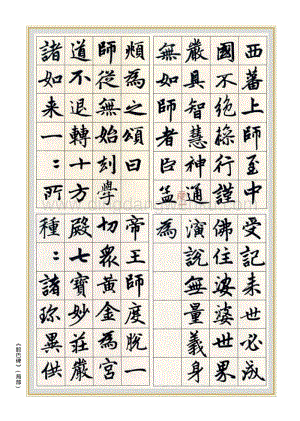 西蕃上師至中
國不絕操行謹
嚴具智慧神通
無如師者臣孟
頫為之頌曰
師從無始刧學
道不退轉十方
諸如來一〻所
受記來世必成
佛住娑婆世界
演說無量義身
為
帝王師度脫一
切衆黃金為宮
殿七寶妙莊嚴
種〻諸珍異供
《胆巴碑》（局部）